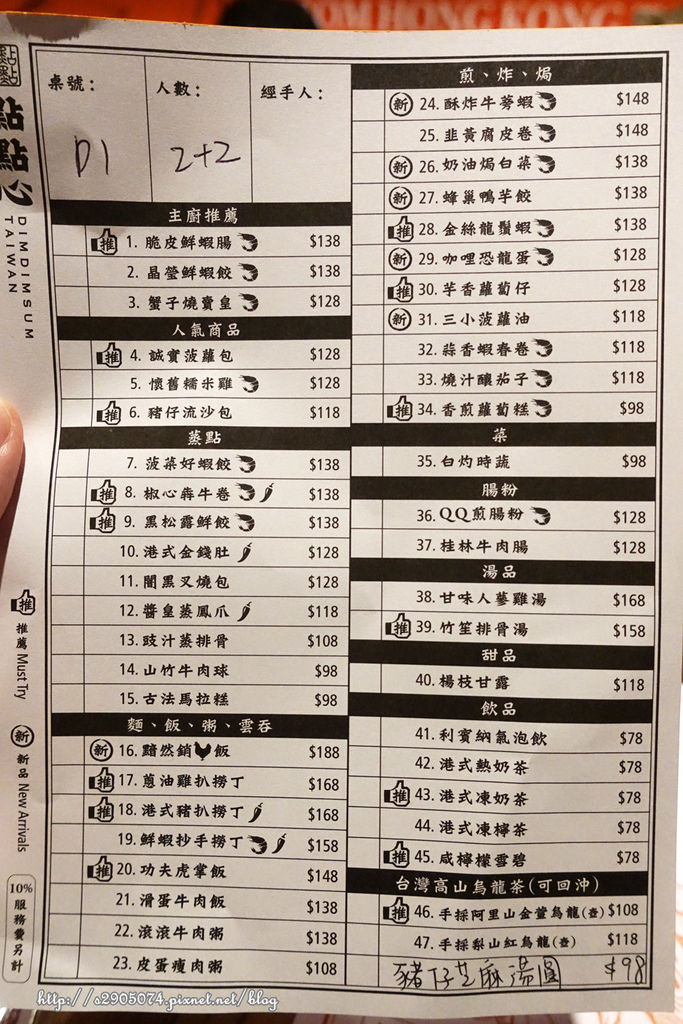 TOM HONG KONG
點點心
DIMDIMSUM
TAIWAN
桌號:
人數:
經手人:
D1
2+2
主廚推薦
推 1. 脆皮鮮蝦腸 $138
2. 晶瑩鮮蝦餃 $138
3. 蟹子燒賣皇 $128
人氣商品
推 4. 誠實菠蘿包 $128
5. 懷舊糯米雞 $128
推 6. 豬仔流沙包 $118
蒸點
7. 菠菜好蝦餃 $138
推 8. 椒心犇牛卷 $138
推 9. 黑松露鮮餃 $138
10. 港式金錢肚 $128
11. 闇黑叉燒包 $128
12. 醬皇蒸鳳爪 $118
13. 豉汁蒸排骨 $108
14. 山竹牛肉球 $98
15. 古法馬拉糕 $98
麵、飯、粥、雲吞
新 16. 黯然銷飯 $188
推 17. 蔥油雞扒撈丁 $168
推 18. 港式豬扒撈丁 $168
19. 鮮蝦抄手撈丁 $158
推 20. 功夫虎掌飯 $148
21. 滑蛋牛肉飯 $138
22. 滾滾牛肉粥 $138
23. 皮蛋瘦肉粥 $108
煎、炸、焗
新 24. 酥炸牛蒡蝦 $148
25. 韭黃腐皮卷 $148
新 26. 奶油焗白菜 $138
新 27. 蜂巢鴨芋餃 $138
推 28. 金絲龍鬚蝦 $138
新 29. 咖哩恐龍蛋 $128
推 30. 芋香蘿蔔仔 $128
新 31. 三小菠蘿油 $118
32. 蒜香蝦春卷 $118
33. 燒汁釀茄子 $118
推 34. 香煎蘿蔔糕 $98
菜
35. 白灼時蔬 $98
腸粉
36. QQ煎腸粉 $128
37. 桂林牛肉腸 $128
湯品
38. 甘味人蔘雞湯 $168
推 39. 竹笙排骨湯 $158
甜品
40. 楊枝甘露 $118
飲品
41. 利賓納氣泡飲 $78
42. 港式熱奶茶 $78
推 43. 港式凍奶茶 $78
44. 港式凍檸茶 $78
推 45. 咸檸檬雪碧 $78
台灣高山烏龍茶(可回沖)
推 46. 手採阿里山金萱烏龍(壺) $108
47. 手採梨山紅烏龍(壺) $118
豬仔芝麻湯圓 $98
推 推薦 Must Try
新 新品 New Arrivals
10%服務費另計
http://s2905074.pixnet.net/blog